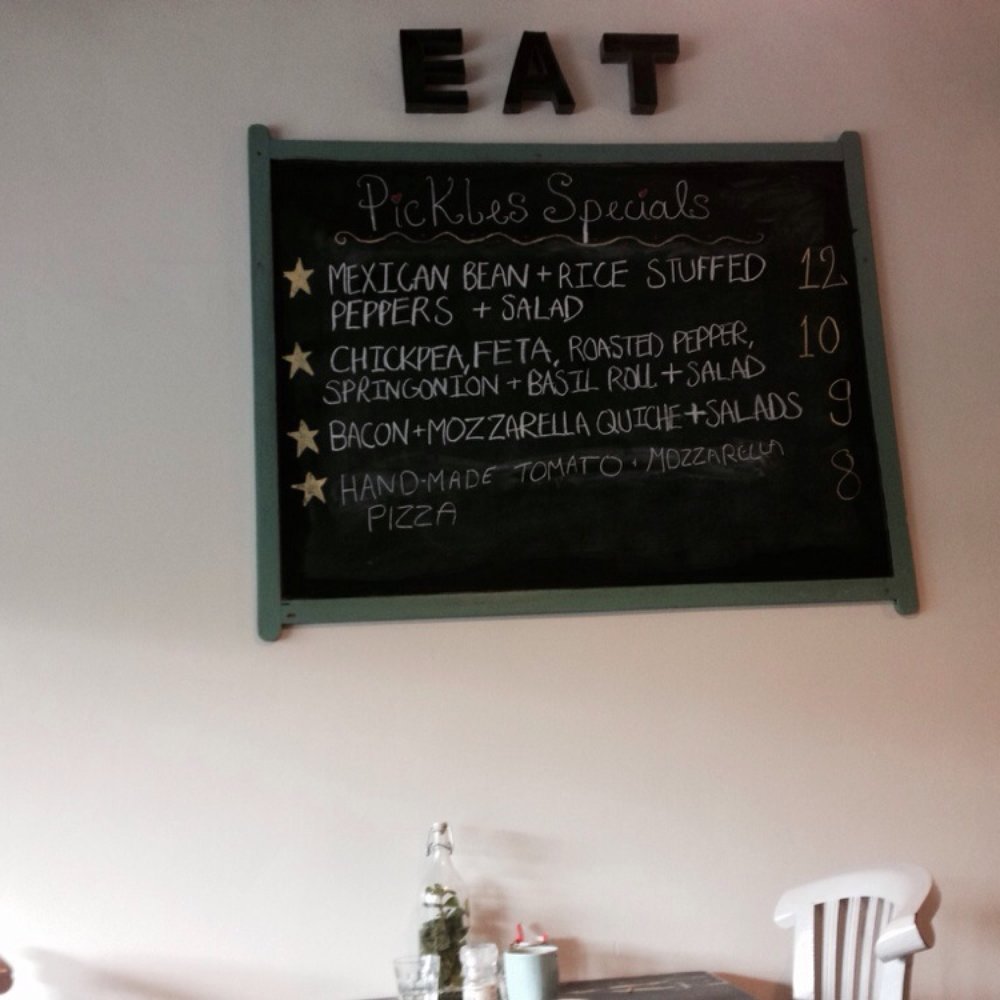 EAT
PicKles Specials
MEXICAN BEAN + RICE STUFFED 12
PEPPERS + SALAD
CHICKPEA, FETA, ROASTED PEPPER, 10
SPRINGONION + BASIL ROLL + SALAD
BACON + MOZZARELLA QUICHE + SALADS 9
HAND-MADE TOMATO + MOZZARELLA 8
PIZZA